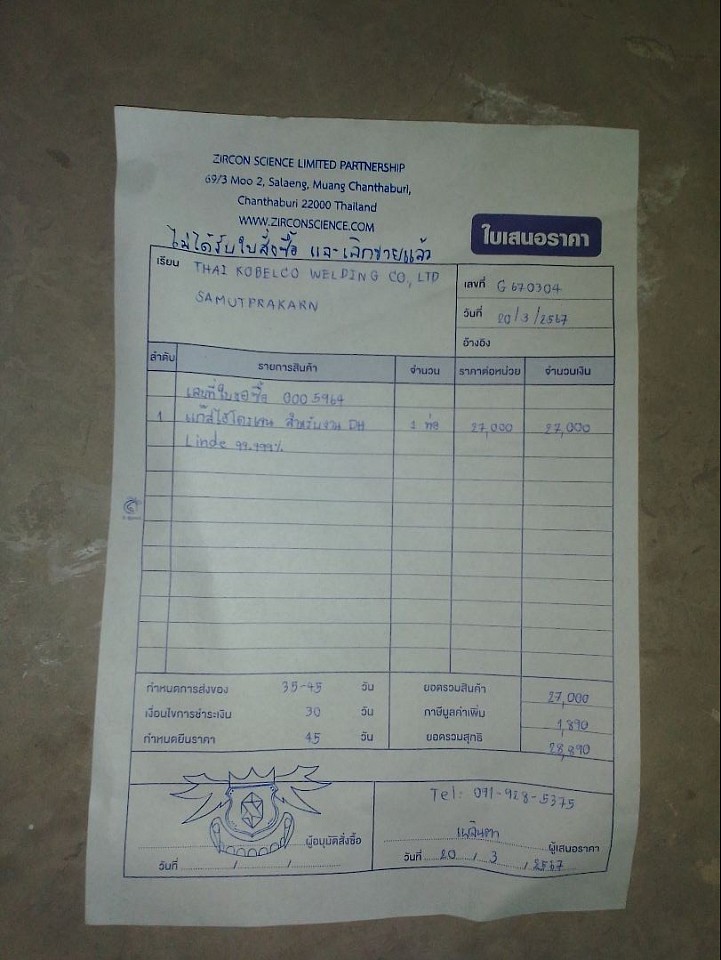 ZIRCON SCIENCE LIMITED PARTNERSHIP
69/3 Moo 2, Salaeng, Muang Chanthaburi,
Chanthaburi 22000 Thailand
WWW.ZIRCONSCIENCE.COM
ใบเสนอราคา
ไม่ได้รับใบสั่งซื้อ และเลิกขายแล้ว
เรียน THAI KOBELCO WELDING CO., LTD
SAMUTPRAKARN
เลขที่ G 670304
วันที่ 20/3/2567
อ้างอิง
ลำดับ รายการสินค้า จำนวน ราคาต่อหน่วย จำนวนเงิน
เลขที่ใบขอซื้อ 0005964
1 แก๊สไฮโดรเจน สำหรับงาน DH 1 ท่อ 27,000 27,000
Linde 99.999%
กำหนดการส่งของ 35-45 วัน ยอดรวมสินค้า 27,000
เงื่อนไขการชำระเงิน 30 วัน ภาษีมูลค่าเพิ่ม 1,890
กำหนดยืนราคา 45 วัน ยอดรวมสุทธิ 28,890
Tel: 091-928-5375
ผู้อนุมัติสั่งซื้อ
วันที่ / /
ผู้เสนอราคา
วันที่ 20 / 3 / 2567